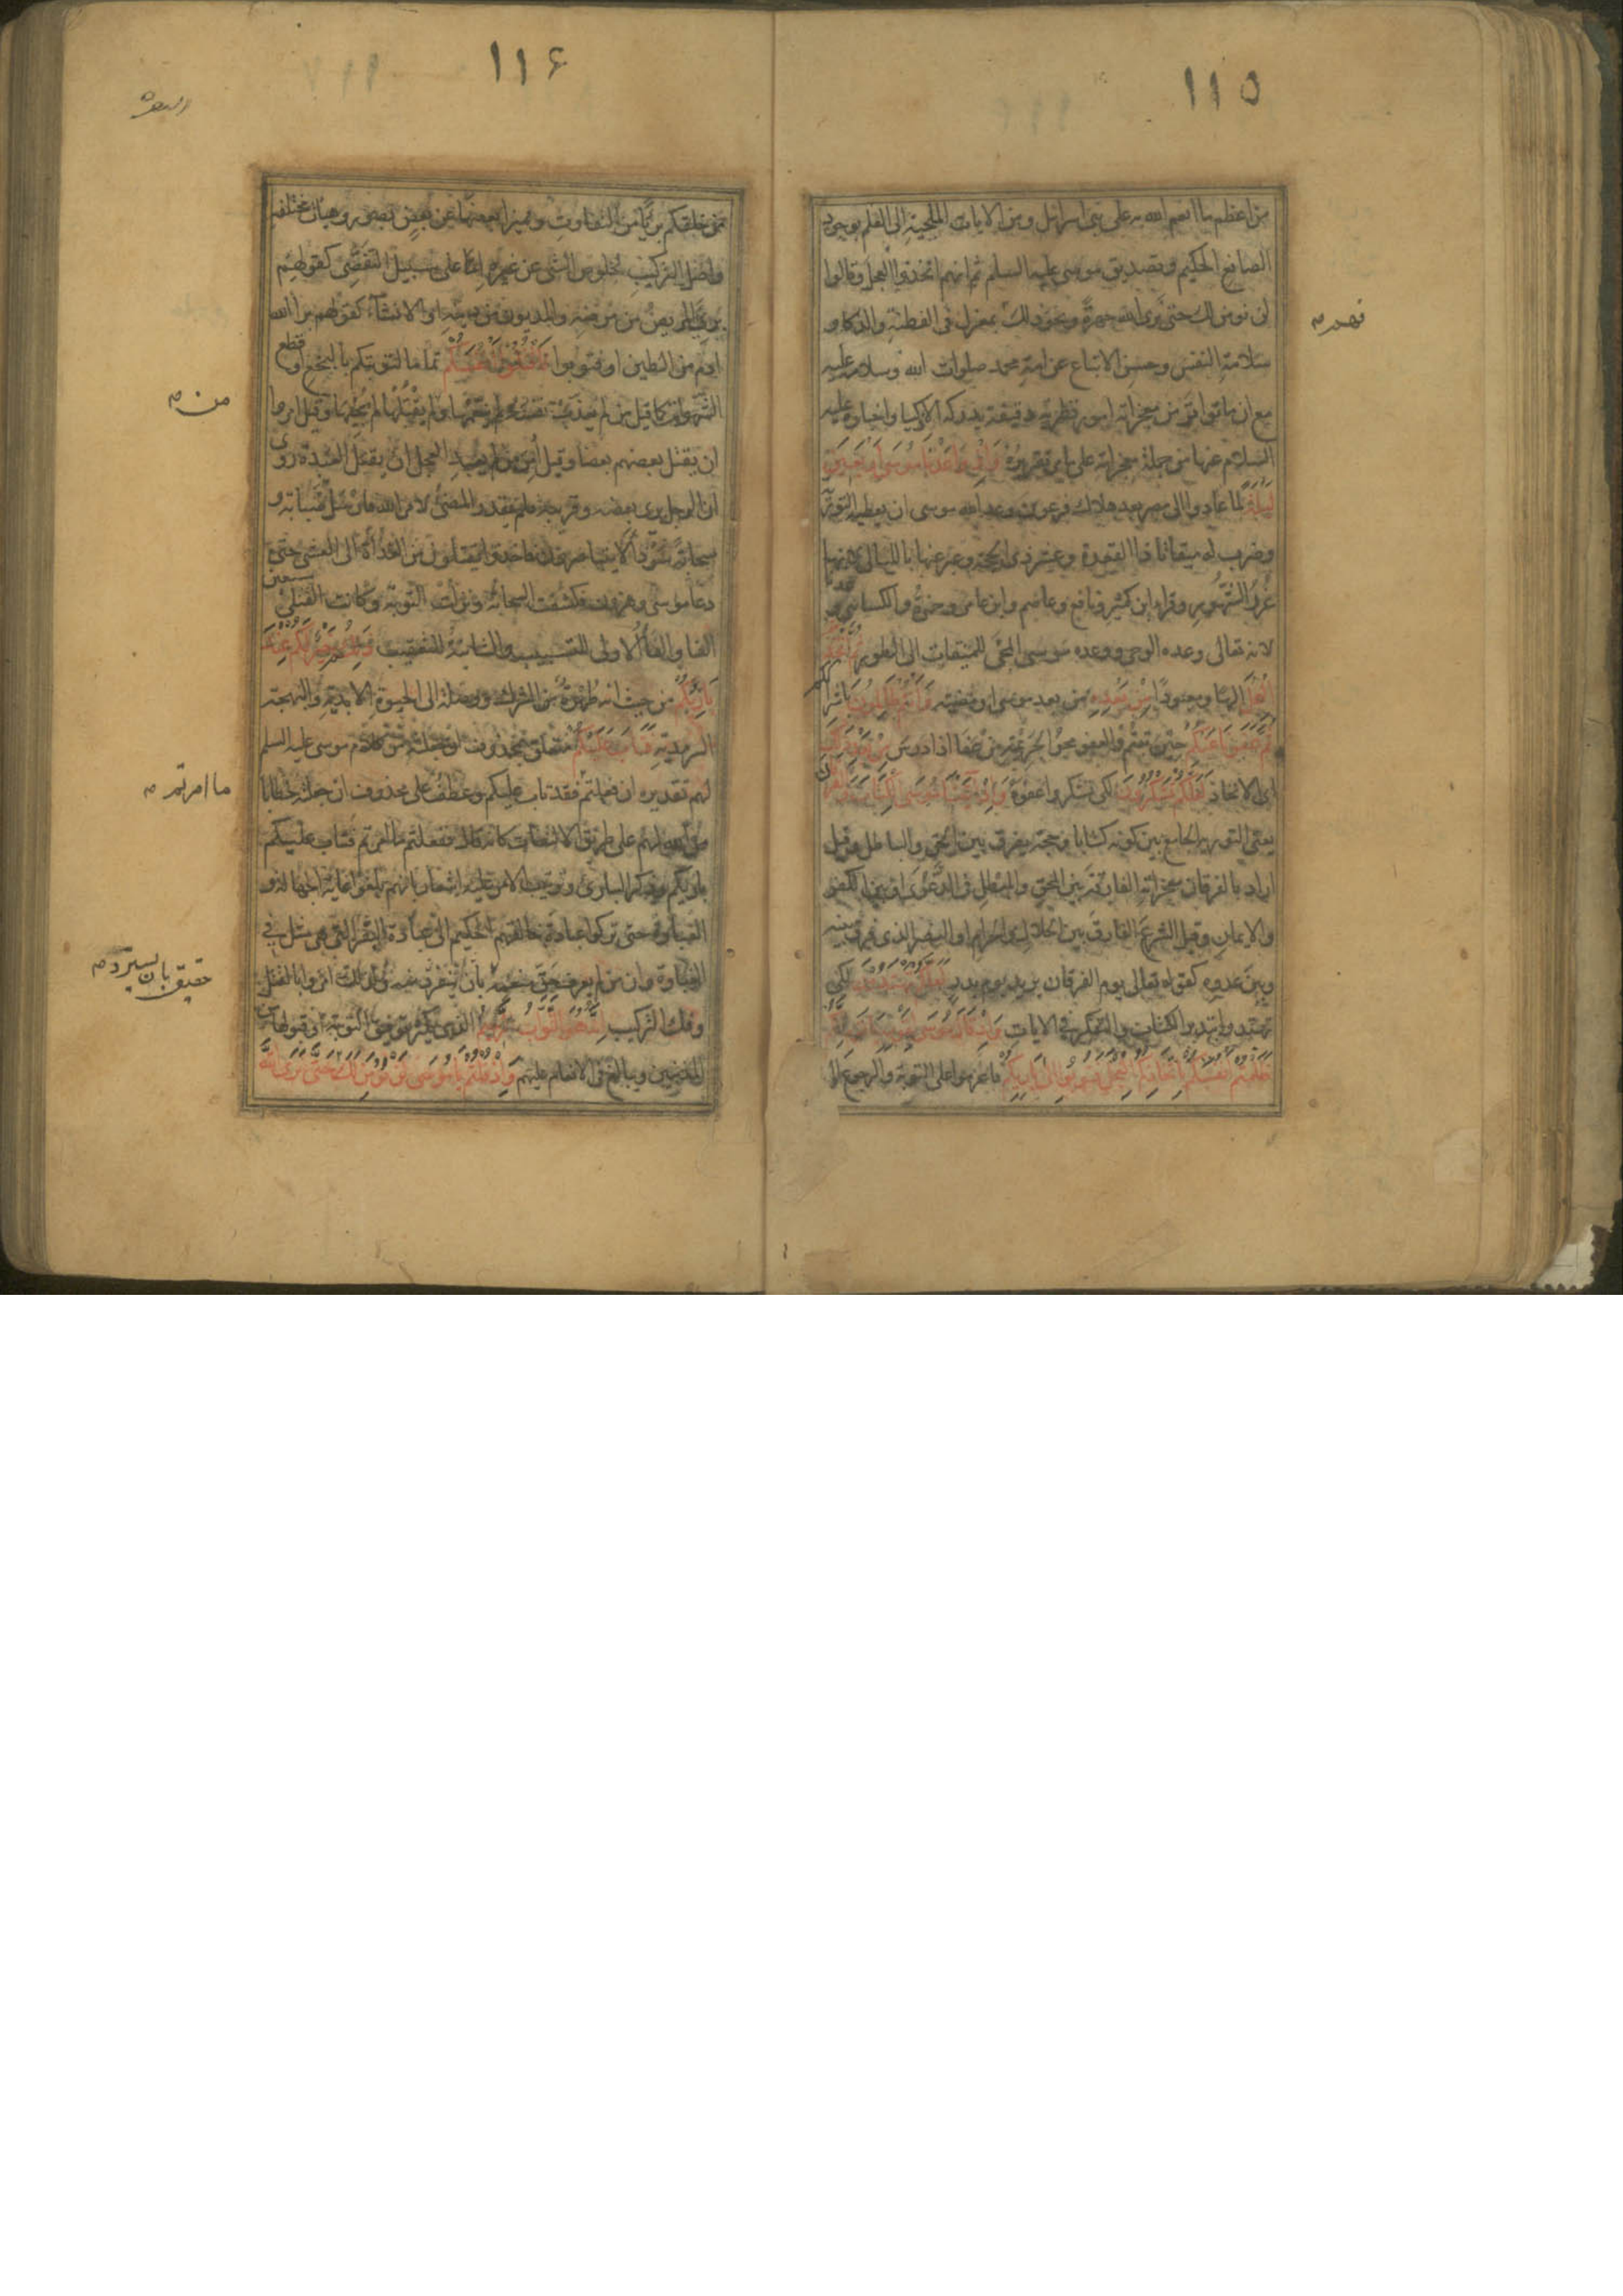 ١١٥
من اعظم ما انعم الله به على بنى اسرائيل ومن الايات الملجئة الى العلم بوجود
الصانع الحكيم وتصديق موسى عليه السلم ثم انهم اتخذوا العجل وقالوا
لن نومن لك حتى نرى الله جهرة ونحو ذلك بمعزل فى الفطنة والذكاء و
سلامة النفس وحسن الاتباع عن امة محمد صلوات الله وسلامه عليه
مع ان ما تواتر من معجزاته امور نظرية دقيقة يدركه الاذكيا واخباره عليه
السلام عنها من جملة معجزاته على ما مر تقريره واذ واعدنا موسى اربعين
ليلة لما عادوا الى مصر بعد هلاك فرعون وعد الله موسى ان يعطيه التورية
وضرب له ميقاتا ذا القعدة وعشر ذى الحجة وعبر عنها بالليالى لانها
غرر الشهور وقراء ابن كثير ونافع وعاصم وابن عامر وحمزة والكسائى
لانه تعالى وعده الوحى ووعده موسى المجئ للميقات الى الطور ثم اتخذتم
العجل الها ومعبودا من بعده من بعد موسى او مضيه وانتم ظالمون باشراككم
ثم عفونا عنكم حين تبتم والعفو محو الجريمة من عفا اذا درس من بعد ذلك
اى الاتخاذ لعلكم تشكرون لكى تشكروا عفوه واذ آتينا موسى الكتاب والفرقان
يعنى التورية الجامع بين كونه كتابا وحجة يفرق بين الحق والباطل وقيل
اراد بالفرقان معجزاته الفارقة بين المحق والمبطل فى الدعوى او بين الكفر
والايمان وقيل الشرع الفارق بين الحلال والحرام او النصر الذى فرق بينه
وبين عدوه كقوله تعالى يوم الفرقان يريد يوم بدر لعلكم تهتدون لكى
تهتدوا بتدبر الكتاب والتفكر فى الايات واذ قال موسى لقومه يا قوم انكم
ظلمتم انفسكم باتخاذكم العجل فتوبوا الى بارئكم فاعزموا على التوبة والرجوع الى
فهم
١١٦
البقره
من خلقكم برئا من التفاوت ومميزا بعضها عن بعض بصور وهيات مختلفة
واصل التركيب لخلوص الشئ عن غيره اما على سبيل التفصى كقولهم
برئ المريض من مرضه والمديون من دينه او الانشاء كقولهم برا الله
ادم من الطين او فتوبوا فاقتلوا انفسكم تماما لتوبتكم بالبخع او قطع
الشهوات كما قيل من لم يعذب نفسه لم ينعمها ولم يقتلها لم يحيها وقيل امروا
ان يقتل بعضهم بعضا وقيل امر من لم يعبد العجل ان يقتل العبدة روى
ان الرجل يرى بعضه وقريبه فلم يقدر المضى لامر الله فارسل ضبابة و
سحابة سوداء لا يتباصرون فاخذوا يقتلون من الغداة الى العشى حتى
دعا موسى وهرون فكشفت السحابة ونزلت التوبة وكانت القتلى سبعين
الفا والفاء الاولى للتسبيب والثانية للتعقيب ذلكم خير لكم عند
بارئكم من حيث انه طهرة من الشرك ووصلة الى الحيوة الابدية والبهجة
السرمدية فتاب عليكم متعلق بمحذوف ان جعلته من كلام موسى عليه السلم
لهم تقديره ان فعلتم فقد تاب عليكم وعطف على محذوف ان جعلته خطابا
من الله لهم على طريق الالتفات كانه قال ففعلتم ما امرتم فتاب عليكم
بارئكم وذكر البارئ وترتيب الامر عليه اشعار بانهم بلغوا غاية الجهالة و
الغباوة حتى تركوا عبادة خالقهم الحكيم الى عبادة البقر التى هى مثل فى
الغباوة وان من لم يعرف حق منعمه بان يسترد منه ولذلك امروا بالقتل
وفك التركيب انه هو التواب الرحيم الذى يكثر توفيق التوبة او قبولها من
المذنبين ويبالغ فى الانعام عليهم واذ قلتم يا موسى لن نومن لك حتى نرى الله
من
ما امرتم
حقيق بان يسترد